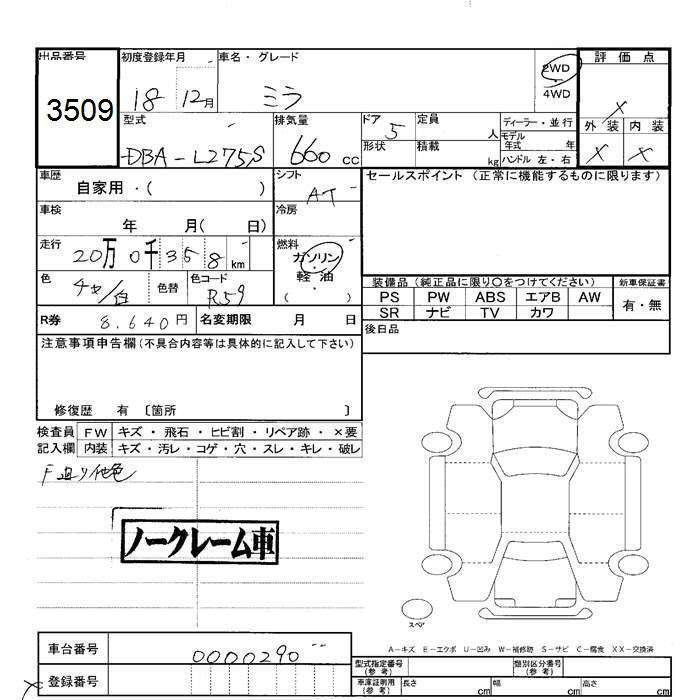 出品番号
3509
初度登録年月
18 12月
車名・グレード
ミラ
2WD
4WD
評価点
X
外装 内装
X X
型式
DBA-L275S
排気量
660 cc
ドア
5
形状
定員
人
積載
kg
ディーラー・並行
モデル
年式 年
ハンドル 左・右
車歴
自家用・( )
シフト
AT
セールスポイント (正常に機能するものに限ります)
車検
年 月( 日)
冷房
走行
20万0千358km
燃料
ガソリン
軽・油
( )
色
チャ/白
色替
色コード
R59
装備品 (純正品に限り○をつけてください)
新車保証書
PS PW ABS エアB AW
有・無
SR ナビ TV カワ
R券
8.640円
名変期限 月 日
後日品
注意事項申告欄(不具合内容等は具体的に記入して下さい)
修復歴 有 〔箇所 〕
検査員
記入欄
FW キズ・飛石・ヒビ割・リペア跡・×要
内装 キズ・汚レ・コゲ・穴・スレ・キレ・破レ
F廻り他色
ノークレーム車
スペア
A-キズ E-エクボ U-凹み W-補修跡 S-サビ C-腐食 XX-交換済
車台番号
0000290
登録番号
型式指定番号
(参考)
類別区分番号
(参考)
車庫証明用
(参考)
長さ cm
幅 cm
高さ cm